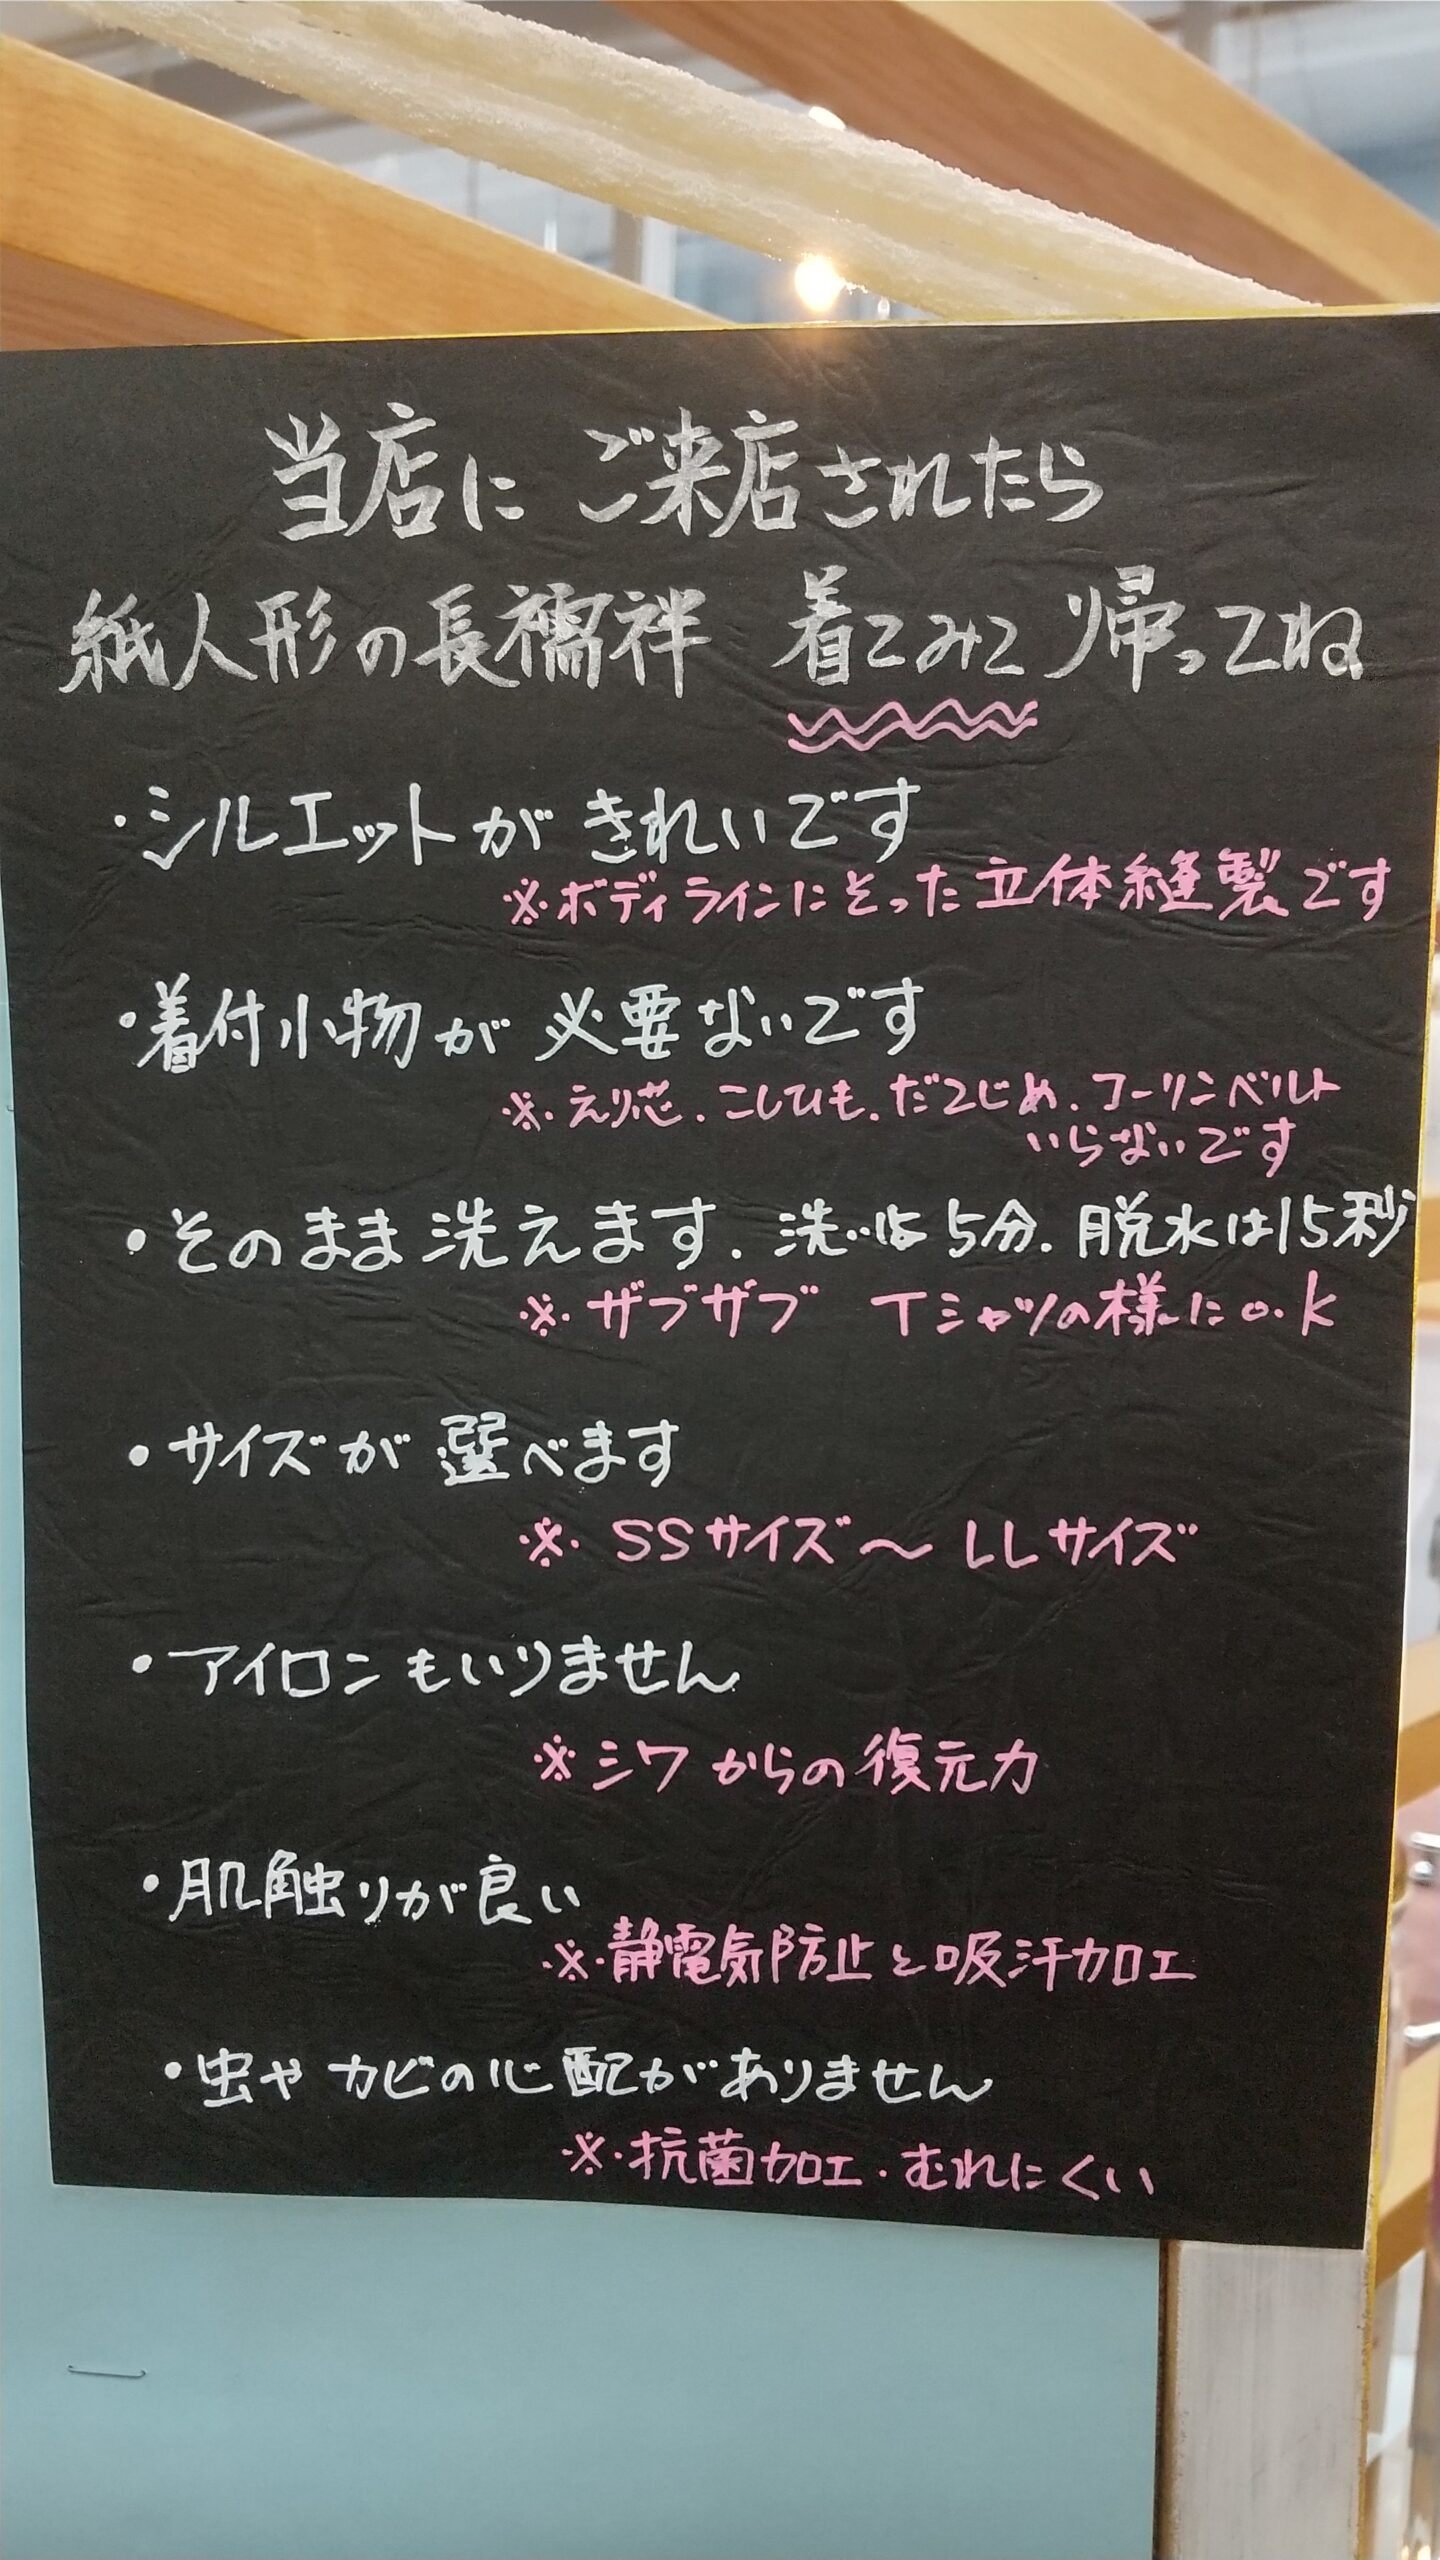 当店に ご来店されたら
紙人形の長襦袢 着てみて 帰ってね
・シルエットが きれいです
※ボディラインにそった立体縫製です
・着付小物が 必要ないです
※えり芯.こしひも.だてじめ.コーリンベルト
いらないです
・そのまま洗えます.洗いは5分.脱水は15秒
※ザブザブ Tシャツの様にo.k
・サイズが 選べます
※SSサイズ〜LLサイズ
・アイロンもいりません
※シワからの復元力
・肌触りが良い
※静電気防止と吸汗加工
・虫やカビの心配がありません
※抗菌加工・むれにくい